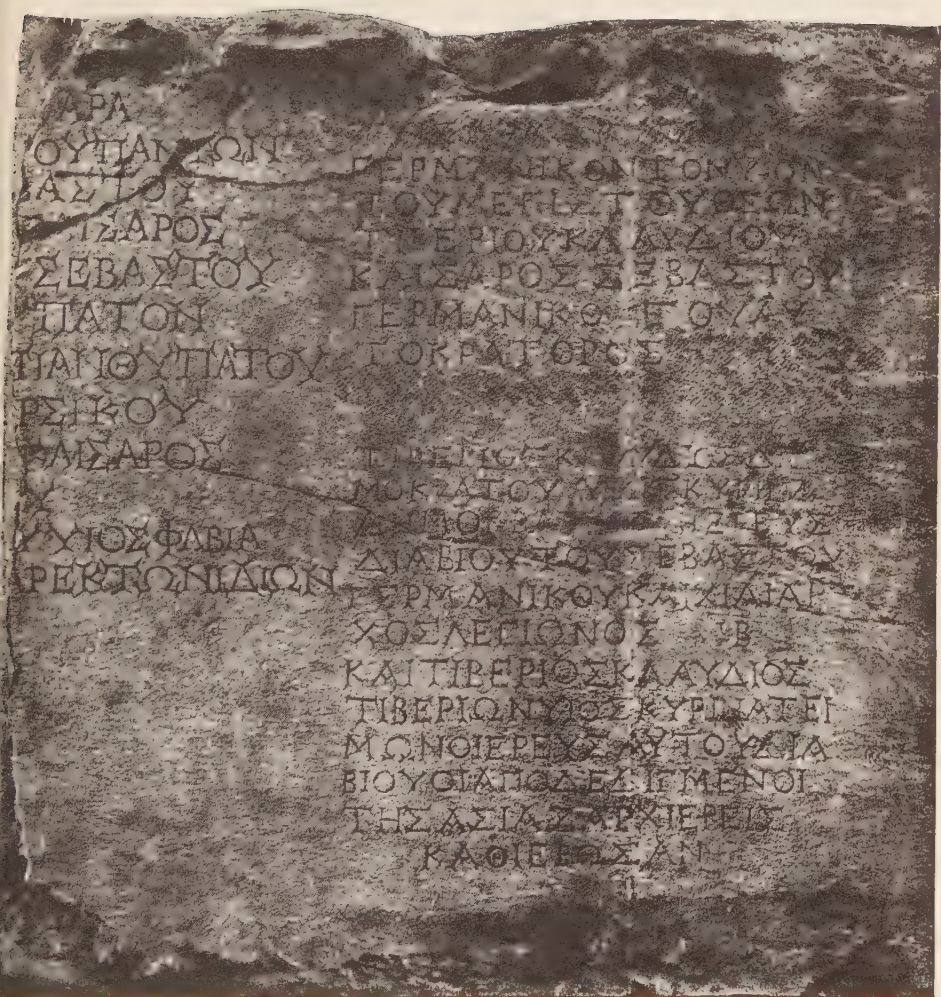 ΑΡΑ
ΟΥΠΑΝΤΩΝ
ΑΣΤΟΥ
ΚΑΙΣΑΡΟΣ
ΣΕΒΑΣΤΟΥ
ΠΑΤΟΝ
ΠΑΝΘΥΠΑΤΟΥ
ΡΣΙΚΟΥ
ΚΑΙΣΑΡΟΣ
Υ
ΥΙΟΣ ΦΑΒΙΑ
ΑΡΕΚΤΩΝΙΔΙΩΝ
ΓΕΡΜΑΝΙΚΟΝΤΟΝ
ΤΟΥΜΕΓΙΣΤΟΥΘΕΩΝ
ΤΙΒΕΡΙΟΥΚΛΑΥΔΙΟΥ
ΚΑΙΣΑΡΟΣΣΕΒΑΣΤΟΥ
ΓΕΡΜΑΝΙΚΟΥΤΟΥΑΥ
ΤΟΚΡΑΤΟΡΟΣ
ΔΙΑΒΙΟΥΤΟΥΣΕΒΑΣΤΟΥ
ΓΕΡΜΑΝΙΚΟΥΚΑΙΧΙΛΙΑΡ
ΧΟΣΛΕΓΙΩΝΟΣ ΙΒ
ΚΑΙΤΙΒΕΡΙΟΣΚΛΑΥΔΙΟΣ
ΤΙΒΕΡΙΩΝΥΙΟΣΚΥΡΙΝΑΤΕΙ
ΜΩΝΟΙΕΡΕΥΣΑΥΤΟΥΔΙΑ
ΒΙΟΥΟΙΑΠΟΔΕΔΙΓΜΕΝΟΙ
ΤΗΣΑΣΙΑΣΑΡΧΙΕΡΕΙΣ
ΚΑΘΙΕΡΩΣΑΝ